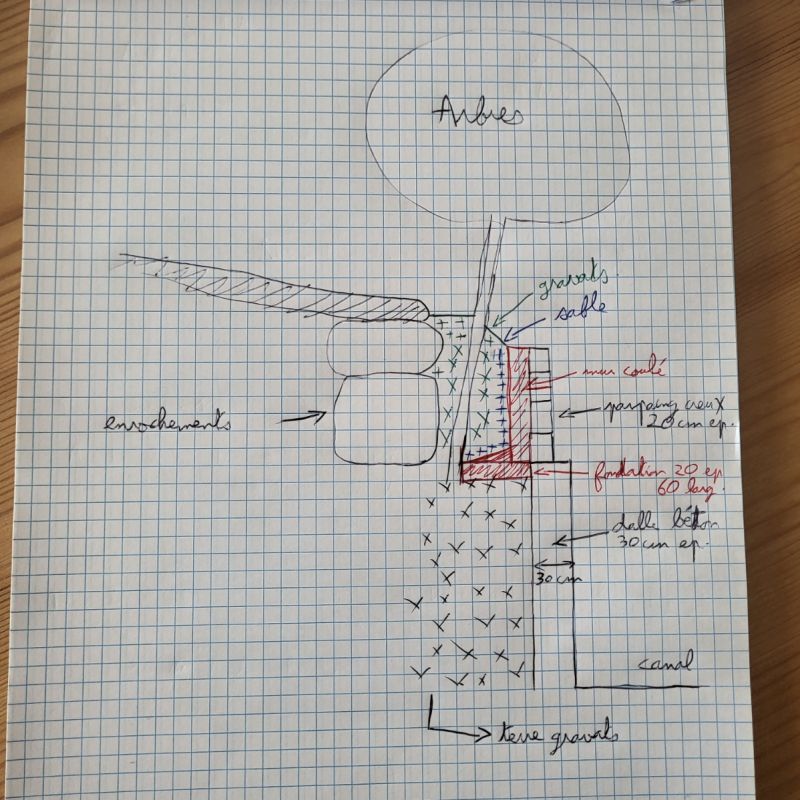 Arbres
gravats
sable
mur coulé
parpaing creux
20 cm ep.
enrochements
fondation 20 ep
60 larg.
dalle béton
30 cm ep.
30 cm
canal
terre gravats